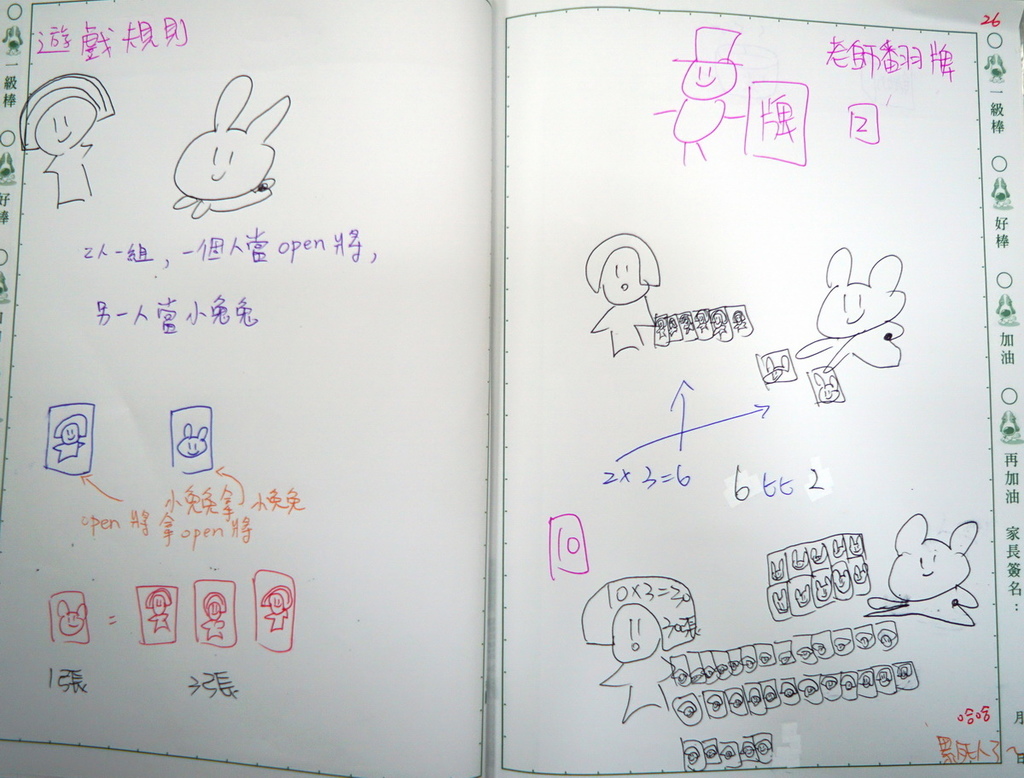 遊戲規則
2人一組，一個人當open將，
另一人當小兔兔
小兔兔拿小兔兔
open將拿open將
=
1張
3張
一級棒
好棒
26
老師翻牌
牌
2
2×3=6
6比2
10
10×3=30
30張
哈哈
累死人了~
一級棒
好棒
加油
再加油
家長簽名：
月
日